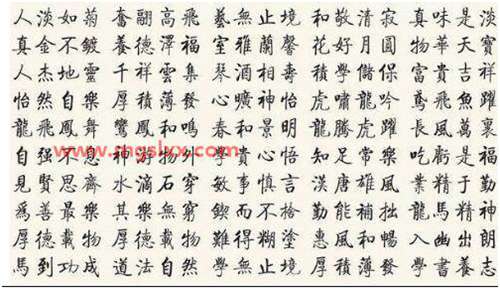 人淡如菊 奮翮高飛 藝無止境 和敬清寂 真味是淡
真金不鍍 養德澤福 室雅蘭馨 花好月圓 物華天寶
人杰地靈 千祥雲集 琴 學儲 富貴吉祥
怡然自樂 厚積薄發 心曠神怡 虎嘯龍吟 鳶飛魚躍
龍飛鳳舞 鸞鳳和鳴 春和景明 龍騰虎躍 長風萬裏
自强不息 神游物外 學貴心悟 知足常樂 吃虧是福
www.mgslxx.com
見賢思齊 水滴石穿 敏事慎言 漢唐雄風 業精于勤
爲善最樂 其樂無窮 鍥而不捨 勤能補拙 龍馬精神
厚德載物 厚德載物 難得糊塗 惠風和暢 入幽出朗
馬到功成 道法自然 學無止境 厚積薄發 學書養志